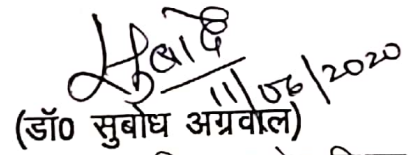 सुबोध
11/06/2020
(डॉ0 सुबोध अग्रवाल)